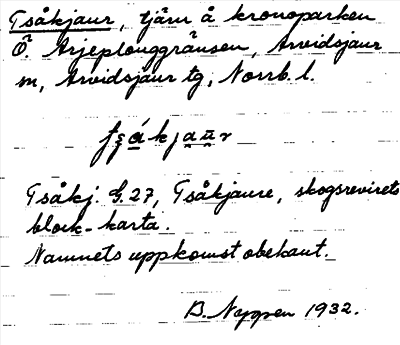 Tsåkjaur, tjärn å kronoparken
Ö Arjeplouggränsen, Arvidsjaur
sn, Arvidsjaur tg, Norrb. l.
Tsåkj. G. 27, Tsåkjaure, skogsrevirets
block-karta.
Namnets uppkomst obekant.
B. Nygren 1932.